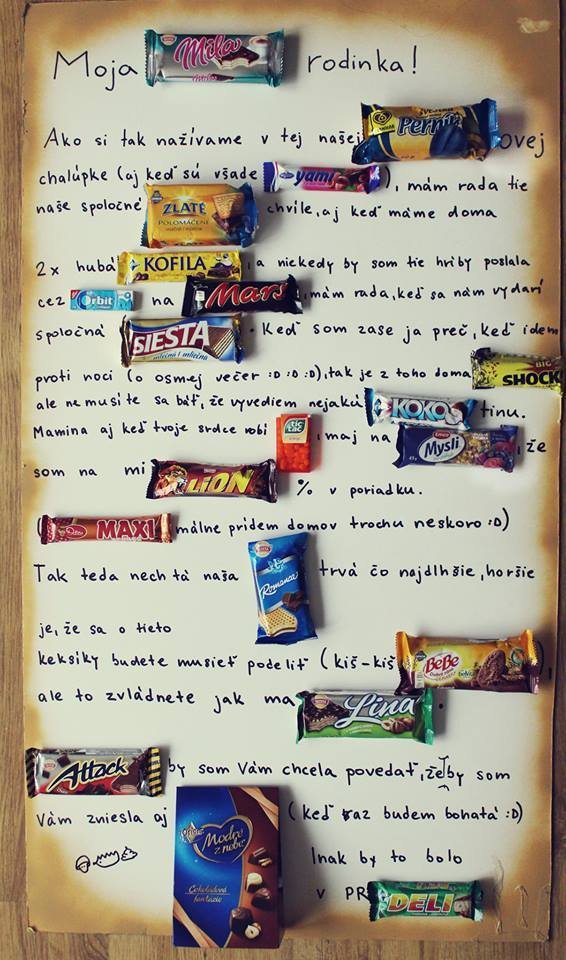 Moja Mila rodinka!
Ako si tak nažívame v tej našej Perník ovej
chalúpke (aj keď sú všade yami), mám rada tie
naše spoločné ZLATÉ POLOMÁČENÉ chvíle, aj keď máme doma
2x hubá KOFILA, a niekedy by som tie hriby poslala
cez Orbit na Mars, mám rada, keď sa nám vydarí
spoločná SIESTA. Keď som zase ja preč, keď idem
proti noci (o osmej večer :D :D :D), tak je z toho doma BIG SHOCK!
ale nemusíte sa báť, že vyvediem nejakú KOKO tínu.
Mamina aj keď tvoje srdce robí tic tac, maj na Mysli, že
som na mi LiON % v poriadku.
(MAXI málne prídem domov trochu neskoro :D)
Tak teda nech tá naša Romanca trvá čo najdlhšie, horšie
je, že sa o tieto
keksíky budete musieť podeliť (kiš-kiš BeBe),
ale to zvládnete jak ma Lina.
Attack by som Vám chcela povedať, žeby som
Vám zniesla aj Modré z neba Čokoládová fantázia (keď raz budem bohatá :D)
Inak by to bolo
v PR DELI